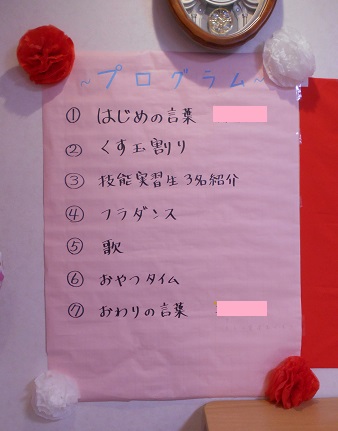 ~プログラム~
① はじめの言葉
② くす玉割り
③ 技能実習生3名紹介
④ フラダンス
⑤ 歌
⑥ おやつタイム
⑦ おわりの言葉